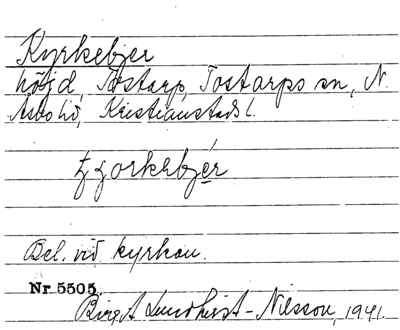 Kyrkebjer
höjd, Tostarp, Tostarps sn, N.
Åsbo hd, Kristianstads l.
tjorkebjér
Bel. vid kyrkan.
Nr 5505
Birgit Lundkvist-Nilsson, 1941.